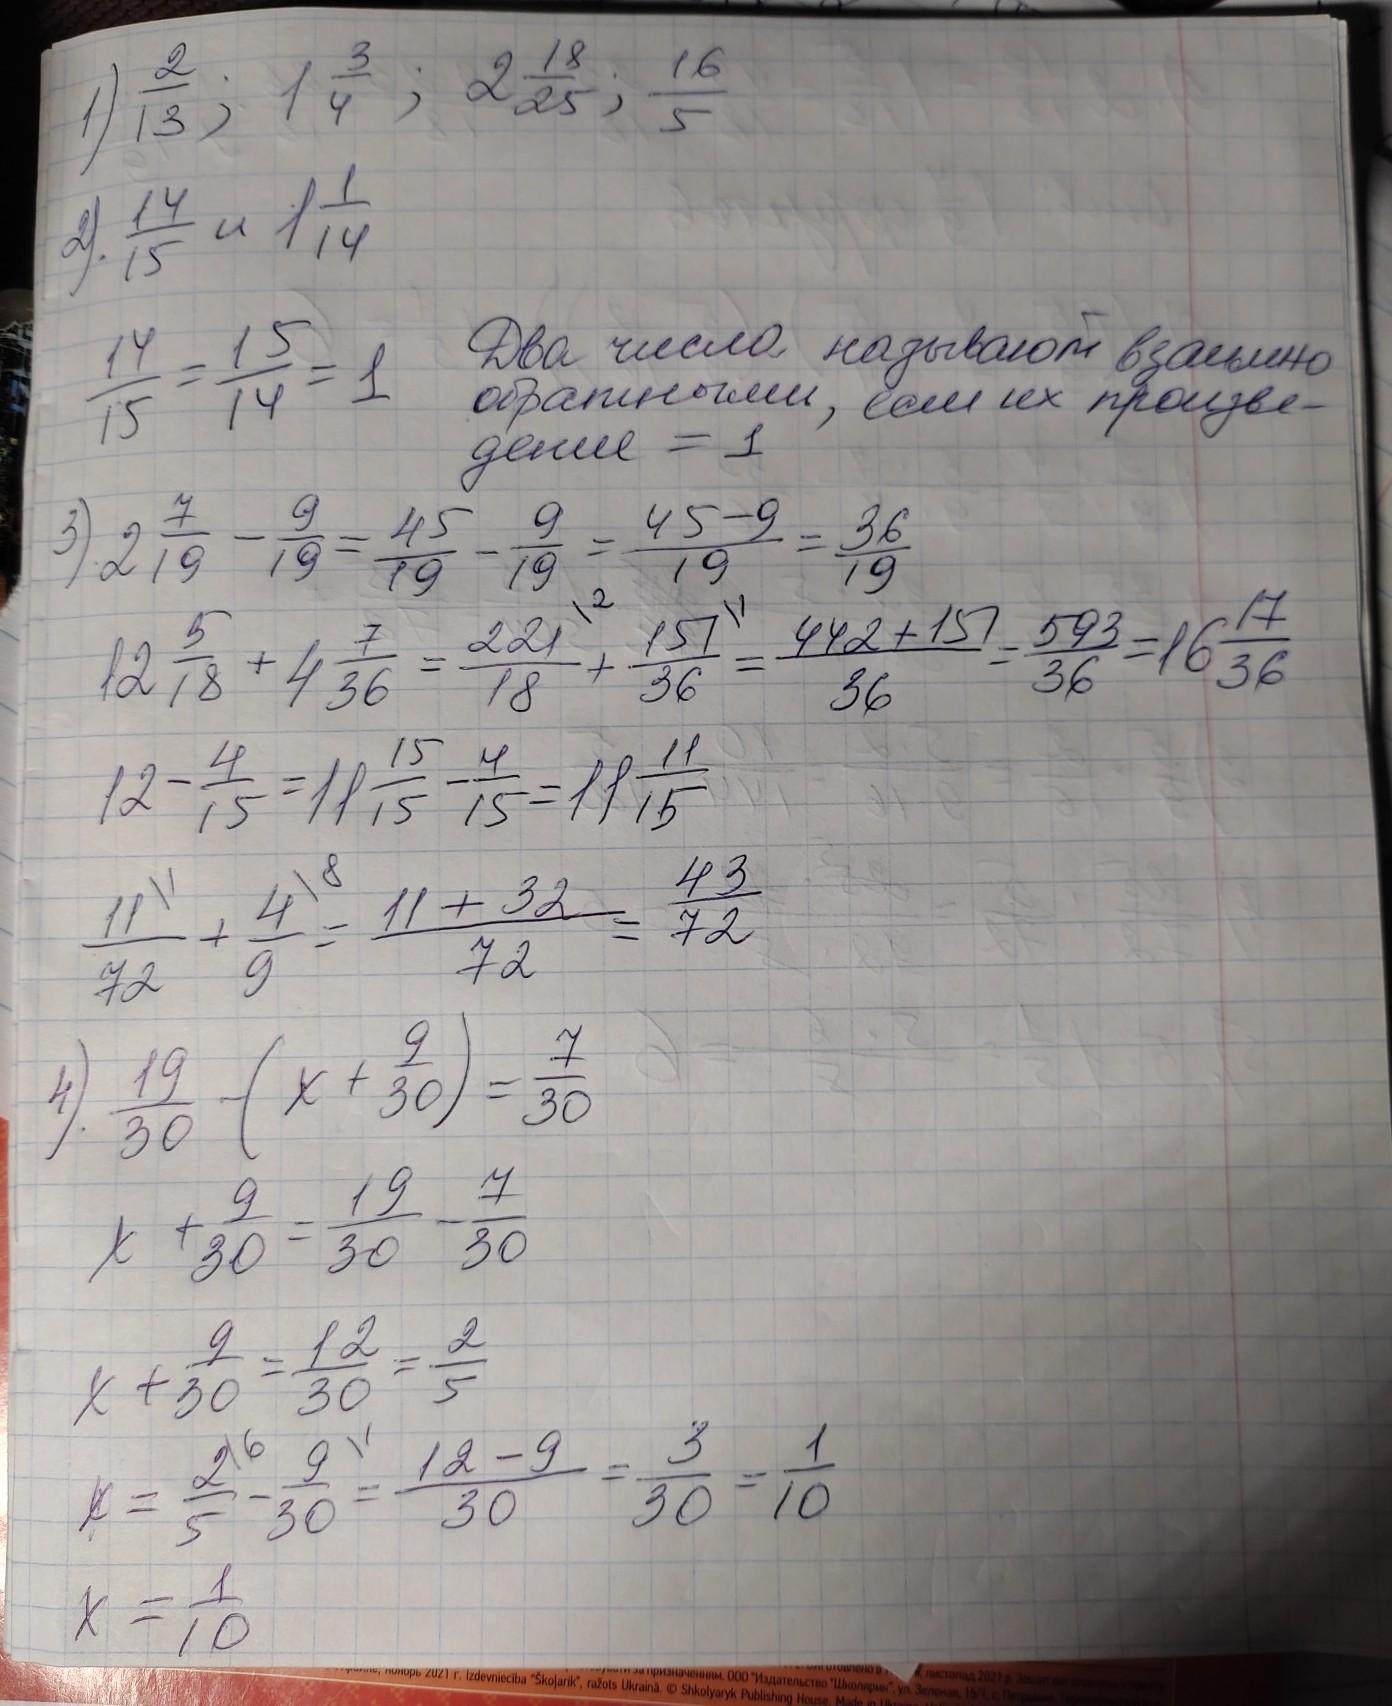 1) 2/13; 1 3/4; 2 18/25; 16/5
2). 14/15 и 1 1/14
14/15 = 15/14 = 1
Два числа называют взаимно
обратными, если их произве-
дение = 1
3) 2 7/19 - 9/19 = 45/19 - 9/19 = (45-9)/19 = 36/19
12 5/18 + 4 7/36 = 221\2/18 + 151\1/36 = (442+151)/36 = 593/36 = 16 17/36
12 - 4/15 = 11 15/15 - 4/15 = 11 11/15
11\1/72 + 4\8/9 = (11 + 32)/72 = 43/72
4). 19/30 - (x + 9/30) = 7/30
x + 9/30 = 19/30 - 7/30
x + 9/30 = 12/30 = 2/5
x = 2\6/5 - 9\1/30 = (12-9)/30 = 3/30 = 1/10
x = 1/10
ноябрь 2021 г. Izdevniecība "Školarik", ražots Ukrainā. © Shkolyaryk Publishing House. Made in
за призначенням. ООО "Издательство "Школярик", ул. Зеленая, 15/1, г.
листопад 2021 р.